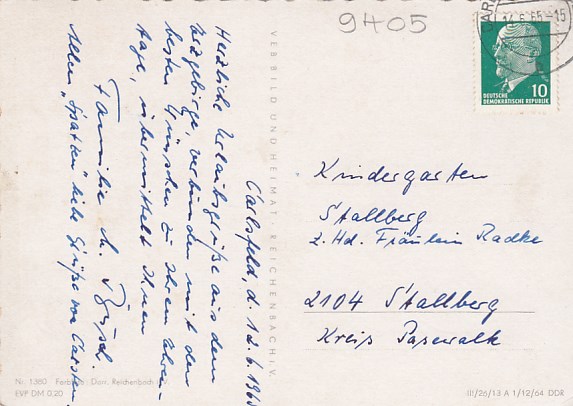 9405
CAR
14.6.65-15
DEUTSCHE
DEMOKRATISCHE REPUBLIK
10
Carlsfeld, d. 12.6.196
Herzliche Urlaubsgrüße aus dem
Erzgebirge, verbunden mit den
besten Wünschen zu Ihrem Ehren-
tage, übermittelt Ihnen
Familie H.
Allen "Spatzen" liebe Grüße von Carsten
VEB BILD UND HEIMAT · REICHENBACH I. V.
Kindergarten
Stallberg
z. Hd. Fräulein Radke
2104 Stallberg
Kreis Pasewalk
Nr. 1380 Farbfoto: Darr, Reichenbach i. V.
EVP DM 0,20
III/26/13 A 1/12/64 DDR